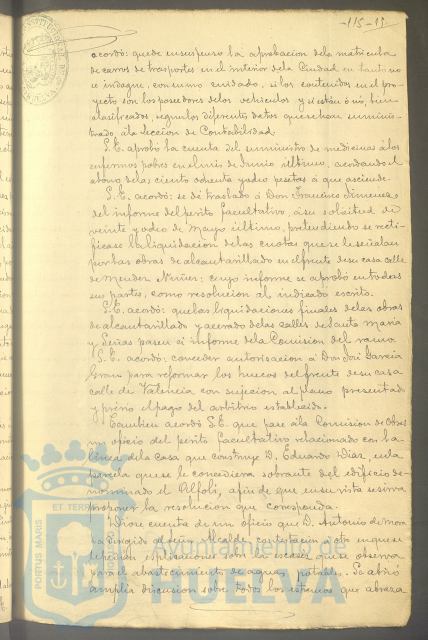 -115-15
acordó: quede en suspenso la aprobacion dela matricula
de carros de trasportes en el interior dela Ciudad en tanto no
se indague, con sumo cuidado, si los contenidos en el pro-
yecto son los poseedores delos vehiculos y si están ó nó, bien
clasificados, segun los diferentes datos que se han suminis-
trado, á la Seccion de Contabilidad.
S.E. aprobó la cuenta del suministro de medicinas á los
enfermos pobres en el mes de Junio último, acordando el
abono delas ciento ochenta y ocho pesetas á que asciende.
S.E. acordó: se dé traslado á Don Francisco Jimenez,
del informe del perito facultativo, á su solicitud de
veinte y ocho de Mayo último, pretendiendo se recti-
ficase la liquidacion delas cuotas que se le señalan
por las obras de alcantarillado en el frente de su casa calle
de Mendez Nuñez: cuyo informe se aprobó en todas
sus partes, como resolucion al indicado escrito.
S.E. acordó: que las liquidaciones finales delas obras
de alcantarillado y acerado delas calles de Santa Maria
y Señas pasen á informe dela Comision del ramo.
S.E. acordó: conceder autorisacion á Don José Garcia
para reformar los huecos del frente de su casa
calle de Valencia con sujecion al plano presentado
y prévio el pago del arbitrio establecido.
Tambien acordó S.E. que pase á la Comision de Obras
un oficio del perito facultativo relacionado con la
linea dela casa que construye D. Eduardo Diaz, en la
parcela que se le concediera sobrante del edificio de-
nominado el Alfolí, afin de que en su vista se sirva
proponer la resolucion que corresponda.
Dióse cuenta de un oficio que D. Antonio de Mora
ha dirigido al señor Alcalde, contestacion á otro en que se
pedian esplicaciones por la escasez que se observa
para el abastecimiento de aguas potables. Se abrió
amplia discusion sobre todos los estremos que abraza
PORTUS MARIS ET TERRAE
Ayuntamiento de
HUELVA